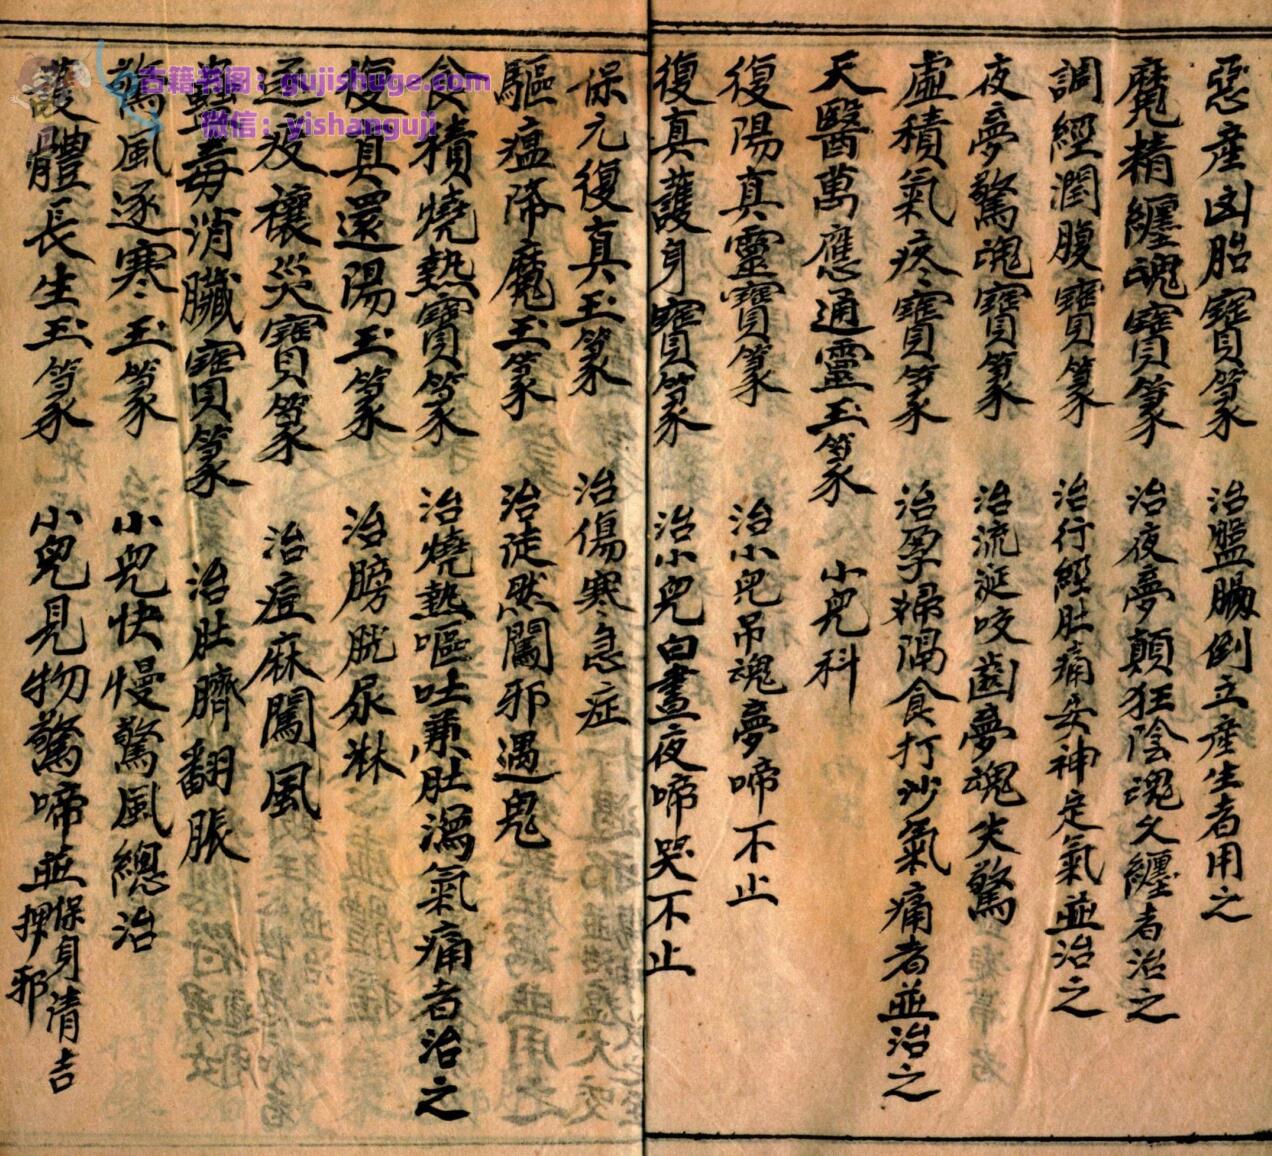 惡産凶胎寳篆 治盤腸倒立産生者用之
魔精纏魂寳篆 治夜夢顛狂陰魂久纏者治之
調經潤腹寳篆 治行經肚痛安神定氣並治之
夜夢驚魂寳篆 治流涎咬齒夢魂失驚
虛積氣疼寳篆 治孕婦隔食打沙氣痛者並治之
天醫萬應通靈玉篆 小兒科
復陽真靈寳篆 治小兒吊魂夢啼不止
復真護身寳篆 治小兒白晝夜啼哭不止
保元復真玉篆 治傷寒急症
驅瘟降魔玉篆 治徒然闖邪遇鬼
食積燒熱寳篆 治燒熱嘔吐兼肚瀉氣痛者治之
復真還陽玉篆 治膀胱尿淋
逐疫禳災寳篆 治痘麻闖風
蠱毒消臟寳篆 治肚臍翻脹
驚風逐寒玉篆 小兒快慢驚風總治
護體長生玉篆 小兒見物驚啼並保身清吉押邪
古籍书阁：gujishuge.com
微信：yishanguji